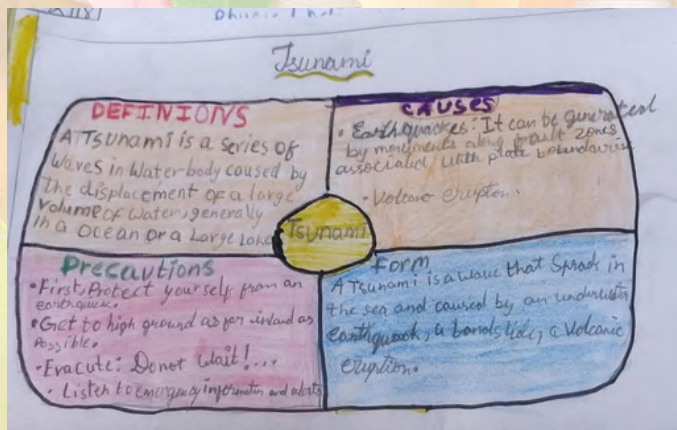 Tsunami
DEFINIONS
A TTsunami is a series of
waves in water body caused by
the displacement of a large
volume of water, generally
in a ocean or a large lake
CAUSES
• Earthquackes: It can be generated
by movments along fault zones
associated with plate boundaries
• Volcano eruption.
Tsunami
Precautions
• First, Protect yourself from an
earthquack.
• Get to high ground as far inland as
Possible.
• Evacute: Do not Wait!...
• Listen to emergency information and alerts
Form
A Tsunami is a wave that Sprads in
the sea and caused by an underwater
earthquack, a landslide, a Volcanic
eruption.